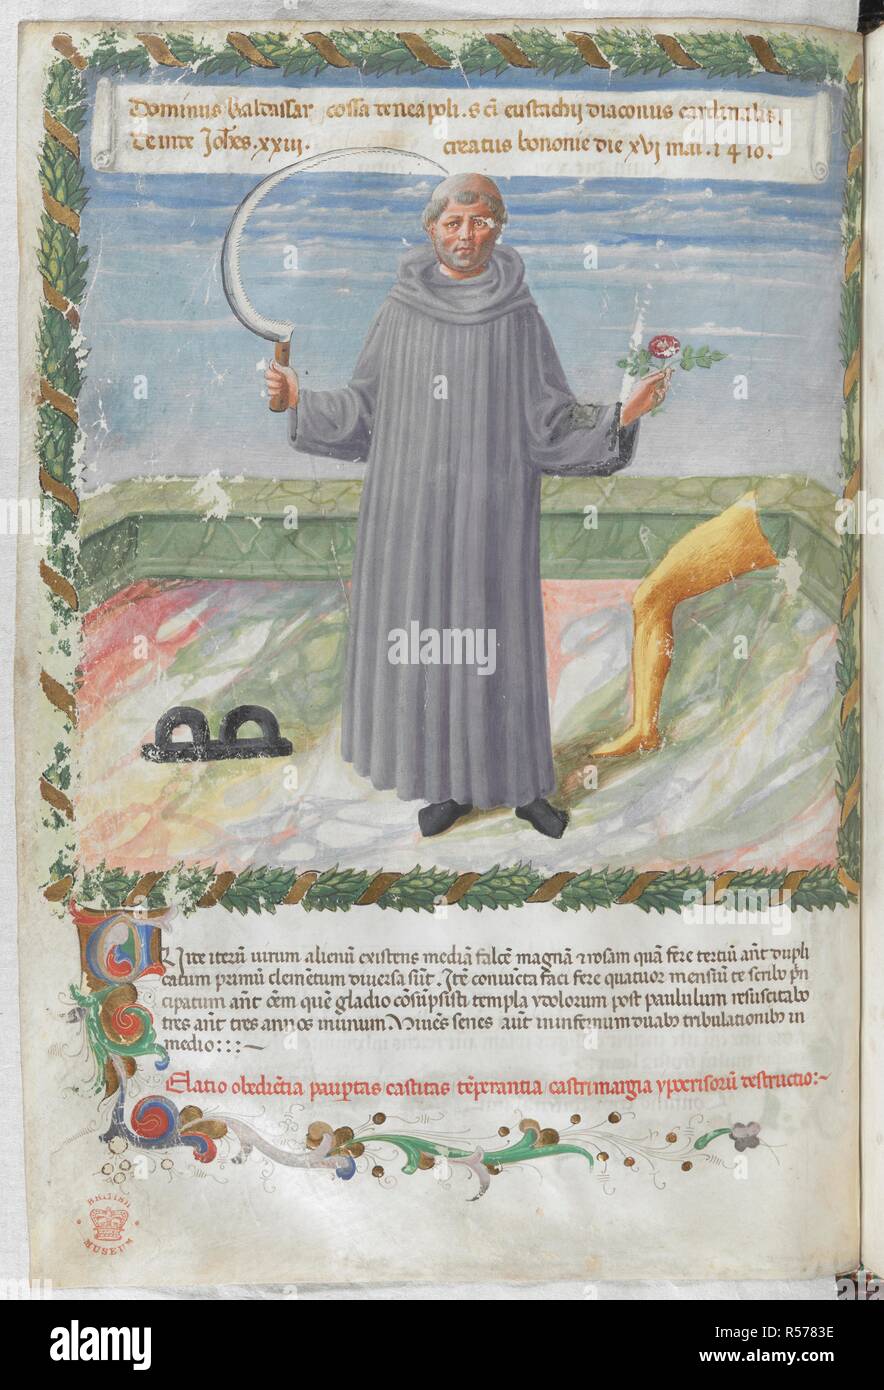 Dominus baldassar cossa de neapoli. s cī eustachij diaconus cardinalis.
Deinde Joħes. xxiii. creatus bononie die xvj mai. 1410.
iterū uirum alienū existens mediā falcē magnā & rosam quā fere tertiū añt dupli
catum primū elemētum diuersa sūt. Itē conuicta faci fere quatuor mensiū te scribo pn
cipatum añt cēm quē gladio cōsūpsisti templa ydolorum post paululum resuscitabo
tres añt tres annos munum. Viuēs senes aūt in infernum duab tribulationib in
medio:::~
Elatio obediētia paup̄tas castitas tēperantia castrimargia ypocrisorū destructio:~
BRITISH
MUSEUM
alamy
Image ID: R5783E
www.alamy.com